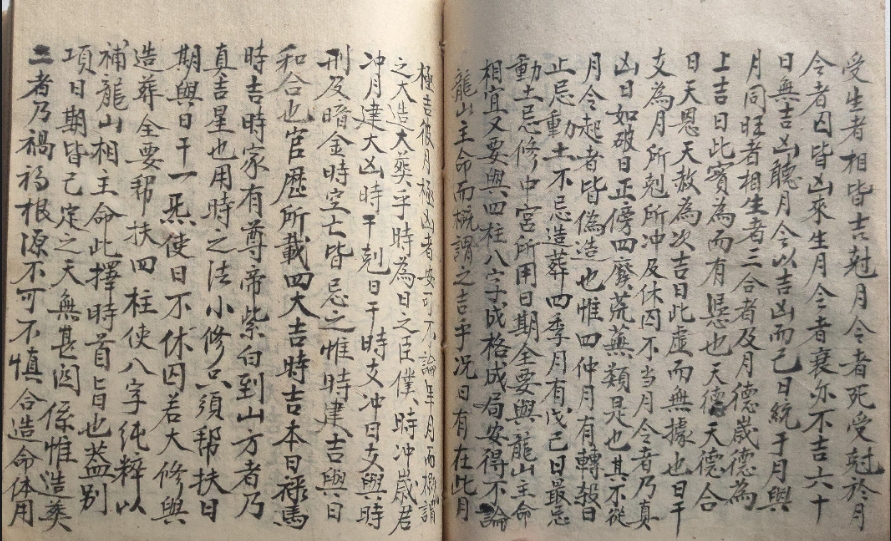 受生者相皆吉尅月令者死受尅於月
令者囚皆凶來生月令者衰亦不吉六十
日無吉凶聽月令以吉凶而已日統于月與
月同旺者相生者三合者及月德歲德為
上吉日此實為而有恩也天德天德合
日天恩天赦為次吉日此虛而無據也日干
支為月所剋所冲及休囚不當月令者乃真
凶日如破日正傍四廢荒蕪類是也其不從
月令起者皆偽造也惟四仲月有轉殺日
止忌動土不忌造葬四季月有戊己日最忌
動土忌修中宮所用日期全要與龍山主命
相宜又要與四柱八字成格成局安得不論
龍山主命而概謂之吉乎况日有在此月
極吉彼月極凶者安可不論年月而概謂
之大造大葬乎時為日之臣僕時冲歲君
冲月建大凶時干剋日干時支冲日支與時
刑及暗金時空亡皆忌之惟時建吉與日
和合也官歷所載四大吉時吉本日祿馬
時吉時家有尊帝紫白到山方者乃
真吉星也用時之法小修只須帮扶日
期與日干一炁使日不休囚若大修與
造葬全要帮扶四柱使八字純粹以
補龍山相主命此擇時首旨也益别
項日期皆已定之天無甚関係惟造葵
二者乃禍福根源不可不慎合造命体用